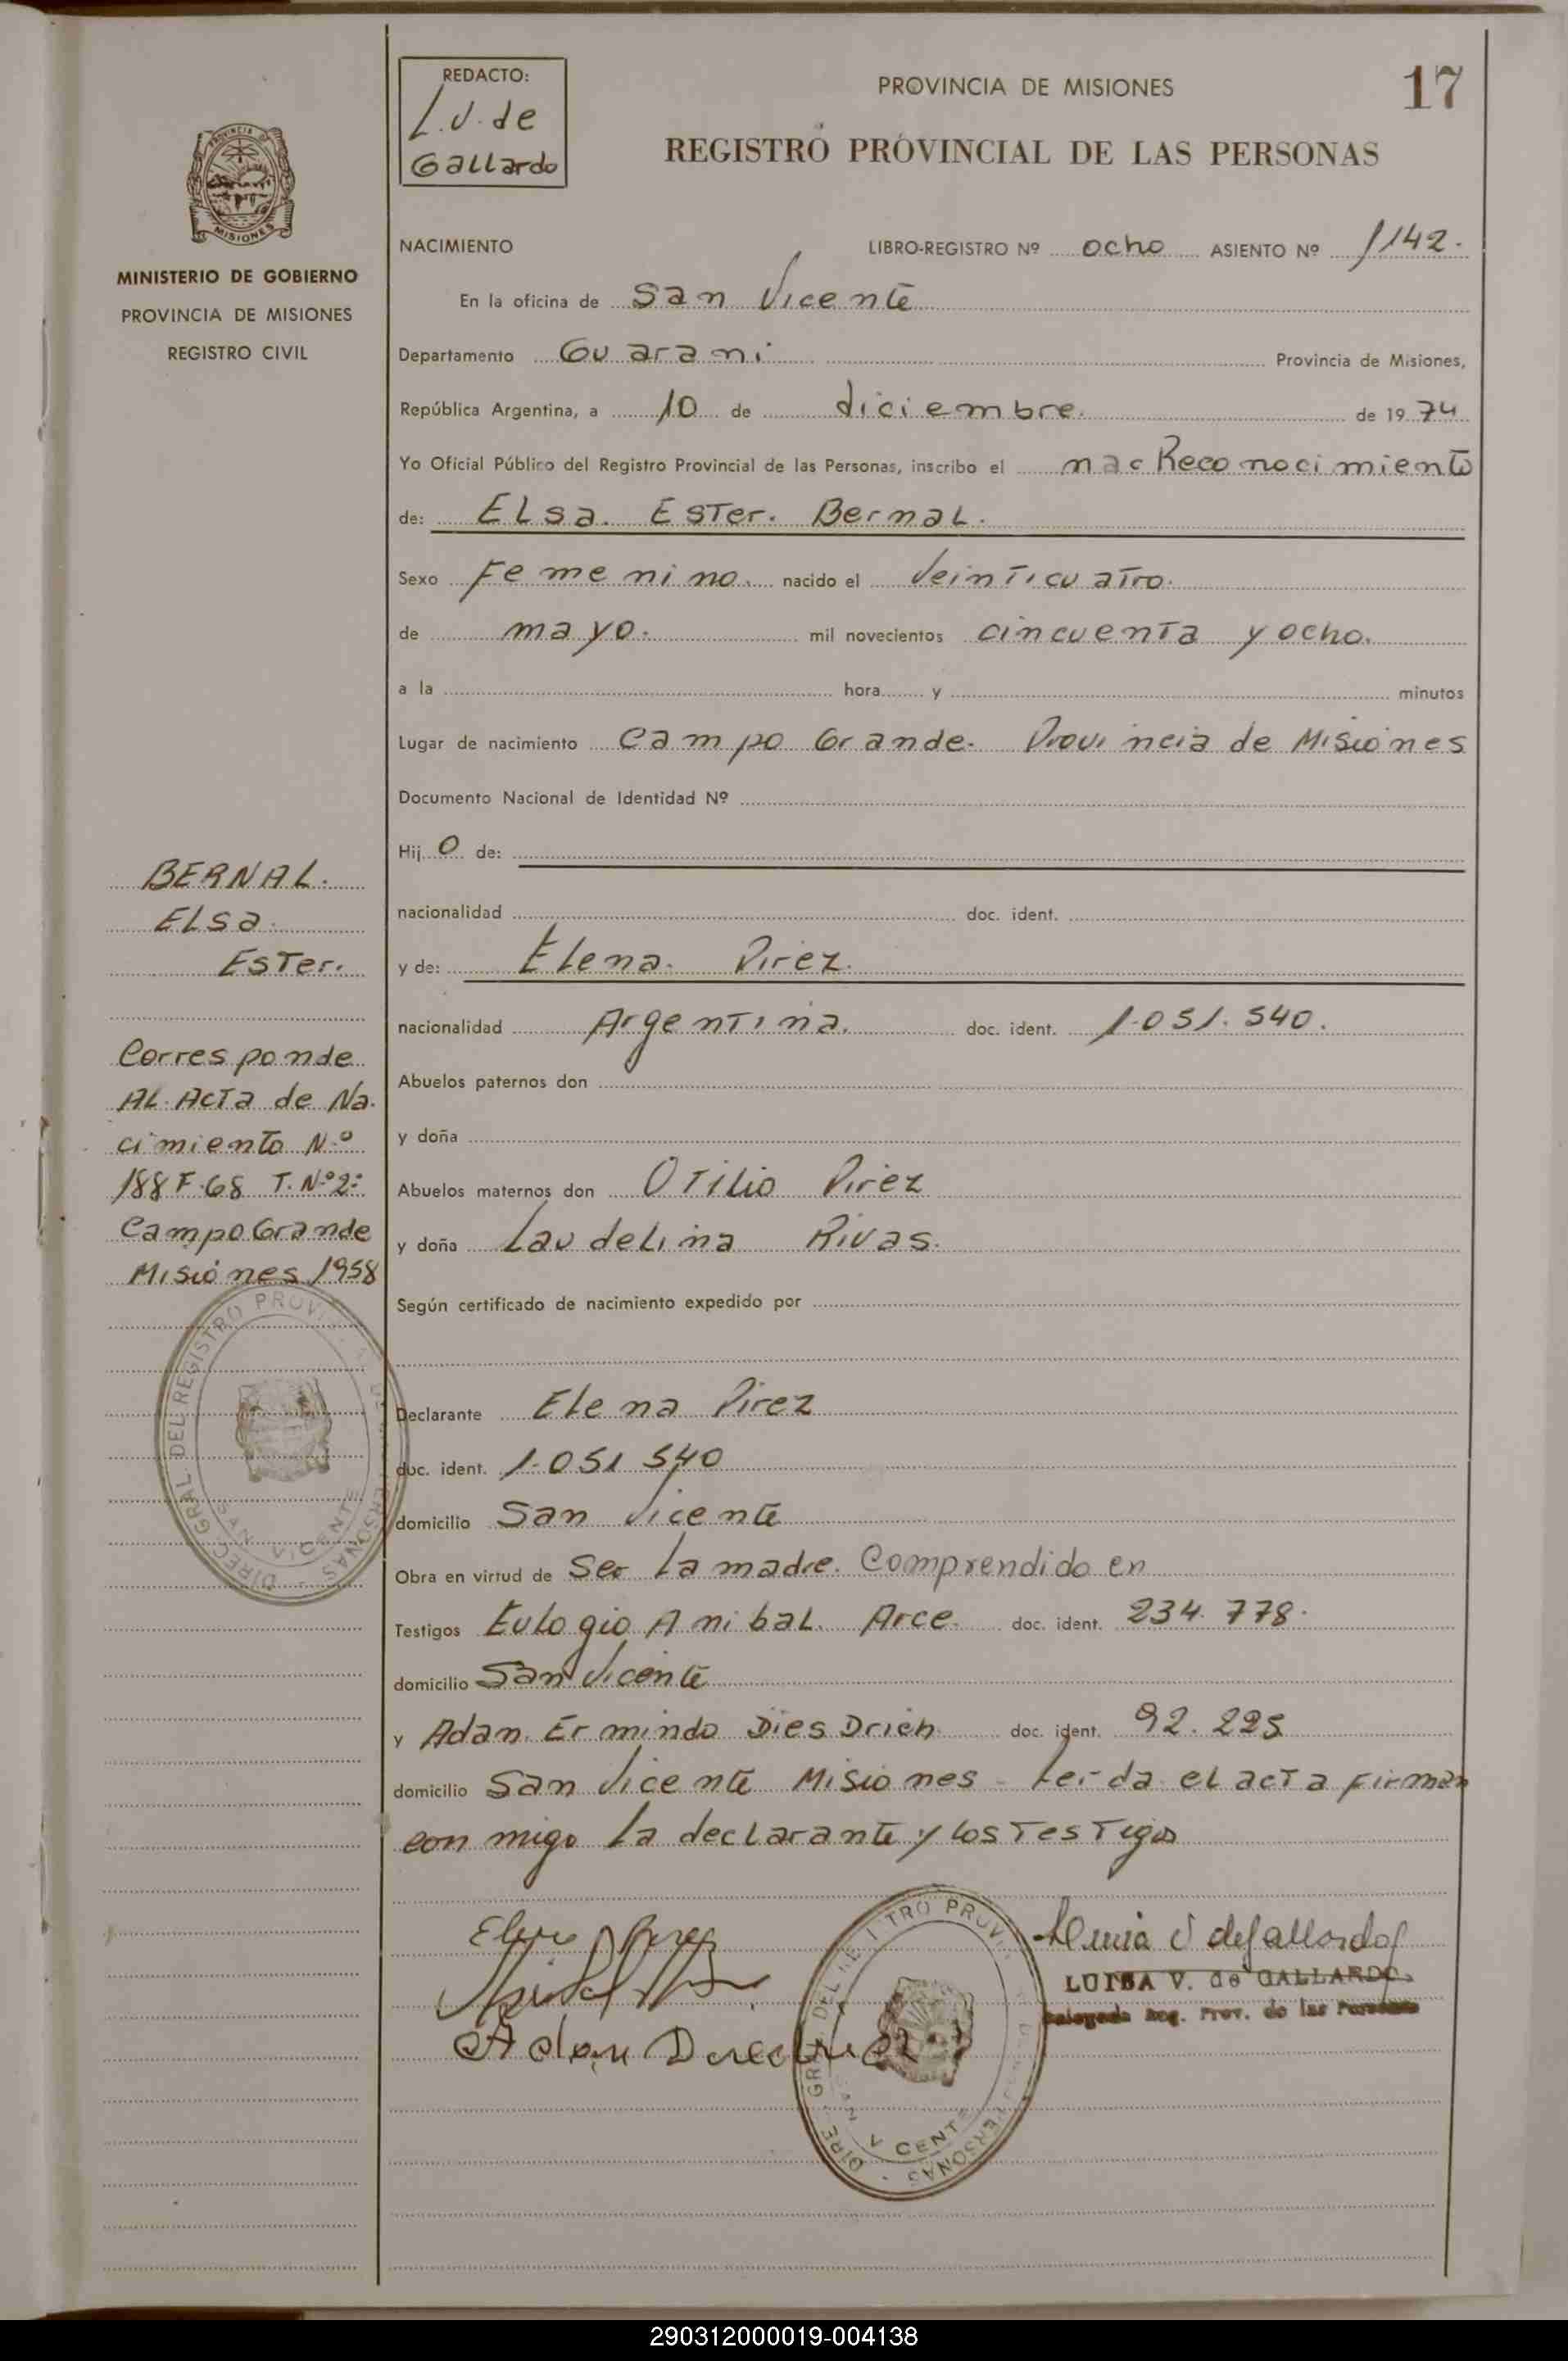 REDACTO:
L.V. de
Gallardo
PROVINCIA DE MISIONES
17
REGISTRO PROVINCIAL DE LAS PERSONAS
MISIONES
MINISTERIO DE GOBIERNO
PROVINCIA DE MISIONES
REGISTRO CIVIL
NACIMIENTO LIBRO-REGISTRO Nº ocho ASIENTO Nº 1142.
En la oficina de San Vicente
Departamento Guarani Provincia de Misiones,
República Argentina, a 10 de diciembre. de 1974
Yo Oficial Público del Registro Provincial de las Personas, inscribo el nac Reconocimiento
de: Elsa. Ester. Bernal.
Sexo Femenino. nacido el Veinticuatro.
de mayo. mil novecientos cincuenta y ocho.
a la hora y minutos
Lugar de nacimiento Campo Grande. Provincia de Misiones
Documento Nacional de Identidad Nº
Hij o de:
nacionalidad doc. ident.
y de: Elena. Pirez.
nacionalidad Argentina. doc. ident. 1.051.540.
Abuelos paternos don
y doña
Abuelos maternos don Otilio Pirez
y doña Laudelina Rivas.
Según certificado de nacimiento expedido por
Declarante Elena Pirez
doc. ident. 1.051 540
domicilio San Vicente
Obra en virtud de Ser la madre. Comprendido en
Testigos Eulogio Anibal. Arce. doc. ident. 234.778.
domicilio San Vicente
y Adan. Ermindo Dies Drich doc. ident. 92.225
domicilio San Vicente Misiones - Leida el acta firman
con migo la declarante y los Testigos
BERNAL.
Elsa.
Ester.
Corresponde
Al Acta de Na.
cimiento N.º
188 F.68 T. Nº2:
Campo Grande
Misiones 1958
DIREC. GRAL DEL REGISTRO PROVI PERSONAS
SAN VICENTE
LUISA V. de GALLARDO
Delegada Reg. Prov. de las Personas
290312000019-004138